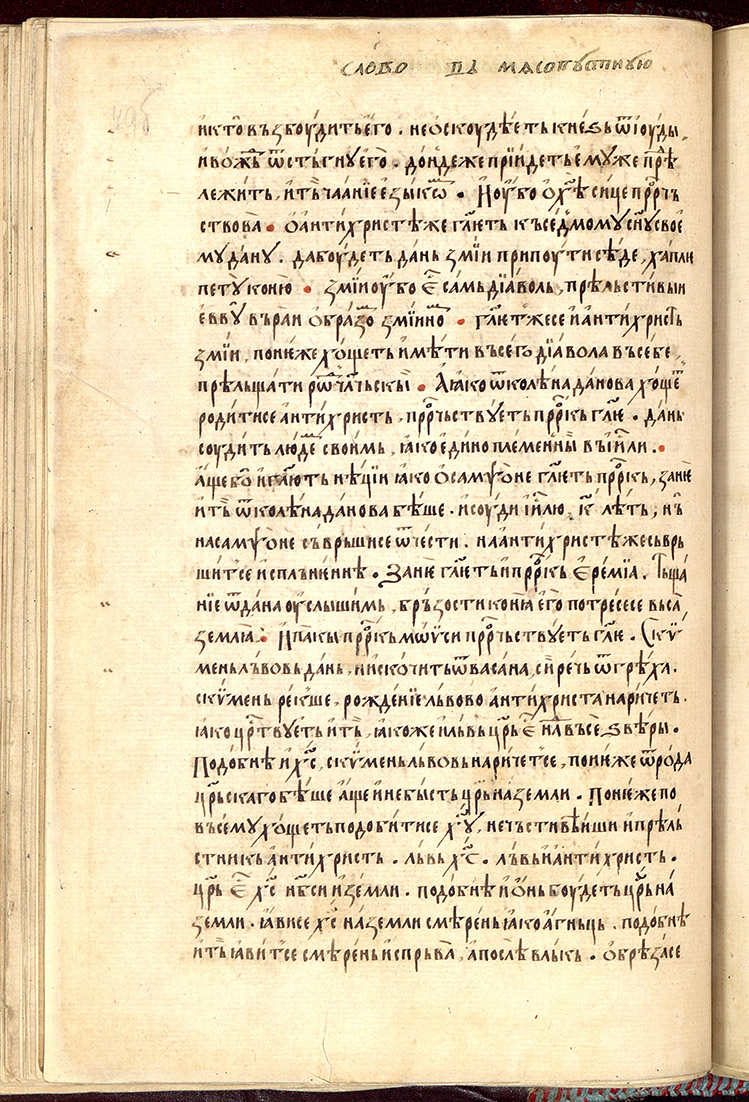 слово в҃ мѧсопустную
и кто възбоудить єго . не ѡскоудѣеть кнеѕь ѿ іоуды ,
и вожⷣь ѿ стьгну єго . дон͑деже прїидеть ємуже прѣⷣ
лежить , и тъ чаанїе єзыкѡⷨ . И ѹбо ѡ хⷭ҇ѣ сице прⷪ҇рчь
ствова . ѡ антихристѣ же гл҃еть къ седмому сн҃у своє
му дану . да боудеть дань змїи при поути сѣде , хаплѥ
петꙋ коню . змїи ѹбо єⷭ҇ самь дїаволь , прѣльстивыи
євву въ раи ѡбразоⷨ змїиноⷨ . гл҃етже се и антихристь
змїи , понѥже хощеть имѣти въсего дїавола въ себе ,
прѣльщати рѡⷣ чл҃чьскы . А ꙗко ѿ колѣна данова хощеⷮ
родитисе антихристь , прⷪ҇рчьствуеть прⷪ҇ркь гл҃ѥ . дань
соудить людеⷨ своимь , ꙗко єдино племенны въ і҃или .
Аще бѡ и гл҃ють нѣцїи ꙗко ѡ самѱоне гл҃еть прⷪ҇ркь , занѥ
и тъ ѿ колѣна данова бѣше . и соуди і҃илю к҃ лѣть , нь
на самѱоне съврьшисе ѿ чести . на антихристѣ же съврь
шитсе исплънѥннѣ . Занѥ гл҃еть и прⷪ҇ркь єремїа . Тъща
нїе ѿ дана ѹслышимь , брьзости конꙗ єго потресесе въса
землꙗ . И пакы прⷪ҇ркь мѡѵси прⷪ҇рчьствуеть гл҃ѥ . Скѵ
мень львовь дань , и искочить ѿ васана , сирѣчь ѿ грѣха .
скѵмень рекше , рожденїе львово антихриста наричеть .
ꙗко црⷭ҇твуеть и тъ , ꙗкоже и львь цр҃ь єⷭ҇ наⷣ въсе ѕвѣры .
Подобнѣ и хⷭ҇ , скѵмень львовь наричетсе , понѥже ѿ рода
цр҃ьскаго бѣше аще и не бысть цр҃ь на земли . Понѥже по
въсему хощеть подобитисе хⷭ҇у , нечьстивѣиши и прѣль
стникь антихристь . львь хⷭ҇ . львь и антихристь .
цр҃ь єⷭ҇ хⷭ҇ нб҃си и земли . подобнѣ и ѡнь боудеть цр҃ь на
земли . ꙗвисе хⷭ҇ на земли смѣрень ꙗко агньць . подобнѣ
и тъ ꙗвитсе смѣрень испръва , а послѣ влькь . ѡбрѣзасе